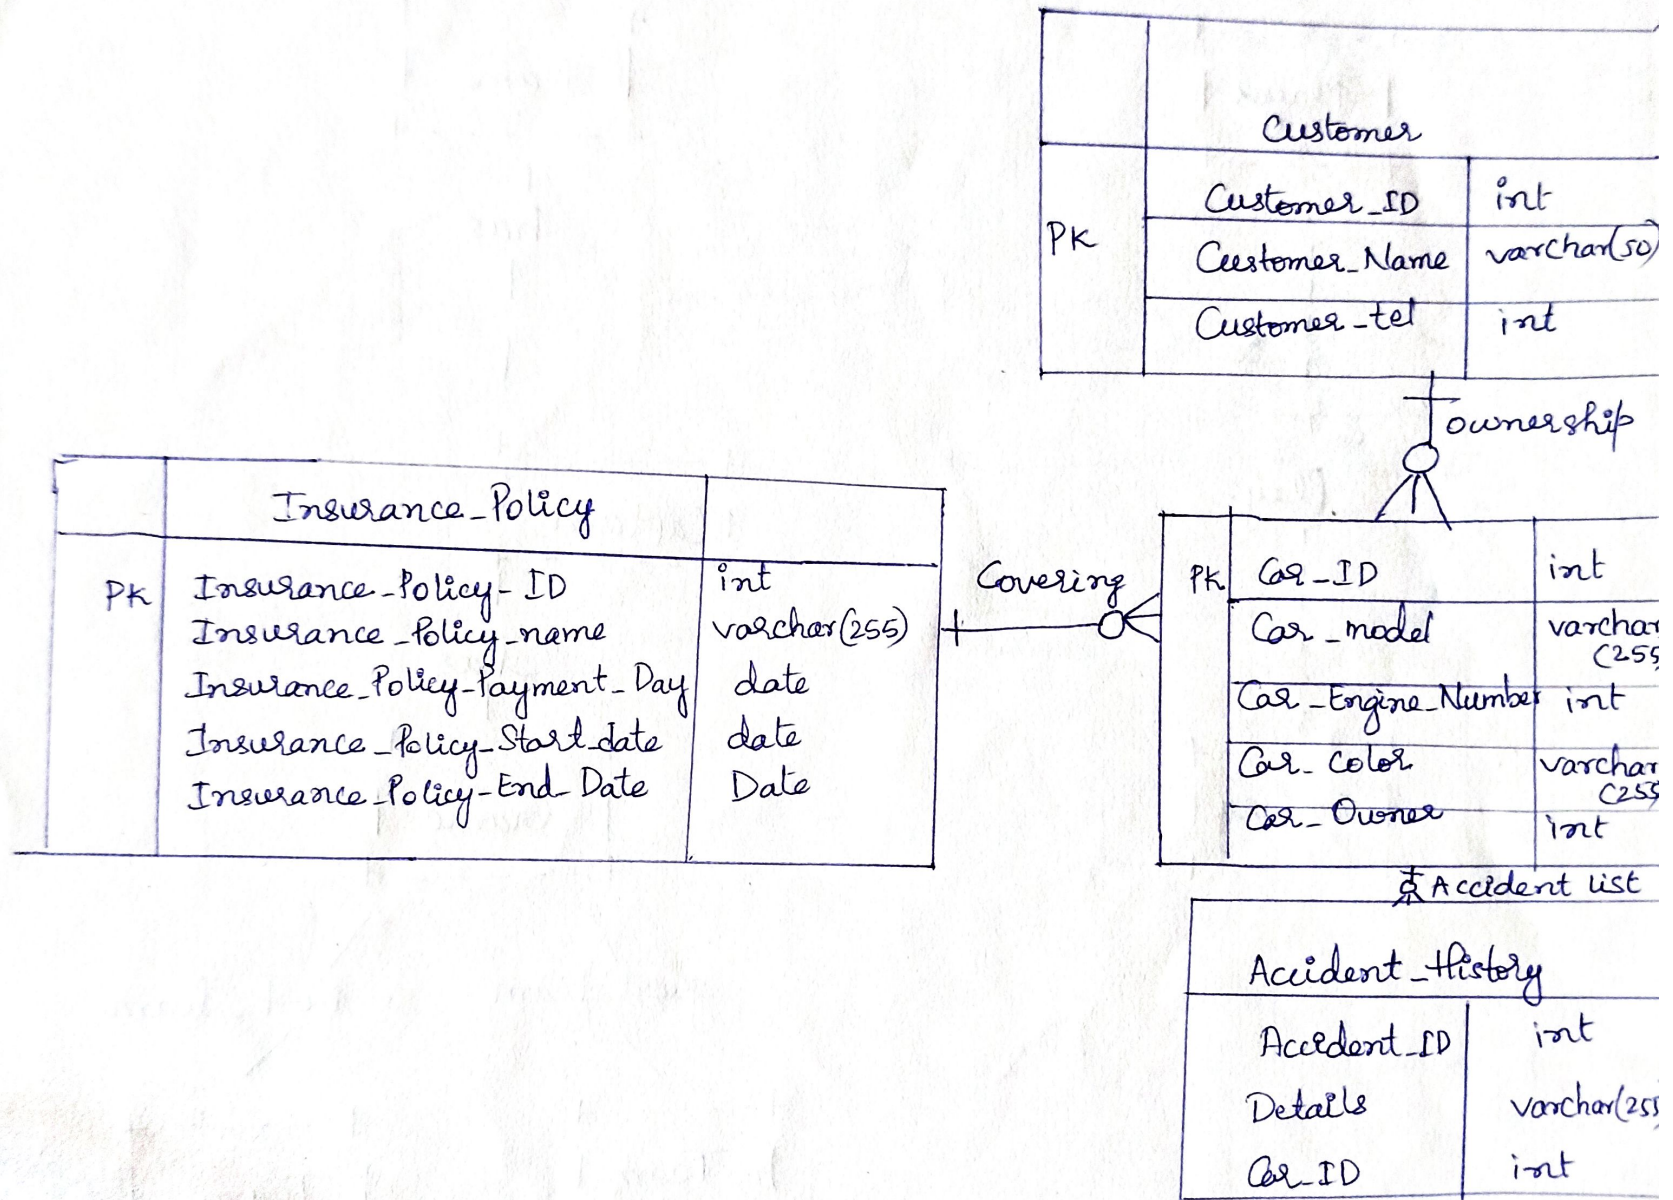 Customer
Customer_ID int
PK
Customer_Name varchar(50)
Customer_tel int
ownership
Insurance_Policy
PK Insurance_Policy_ID int
Insurance_Policy_name varchar(255)
Insurance_Policy_Payment_Day date
Insurance_Policy_Start_date date
Insurance_Policy_End_Date Date
Covering
PK Car_ID int
Car_model varchar
(255
Car_Engine_Number int
Car_Color varchar
(255
Car_Owner int
Accident list
Accident_History
Accident_ID int
Details varchar(255
Car_ID int